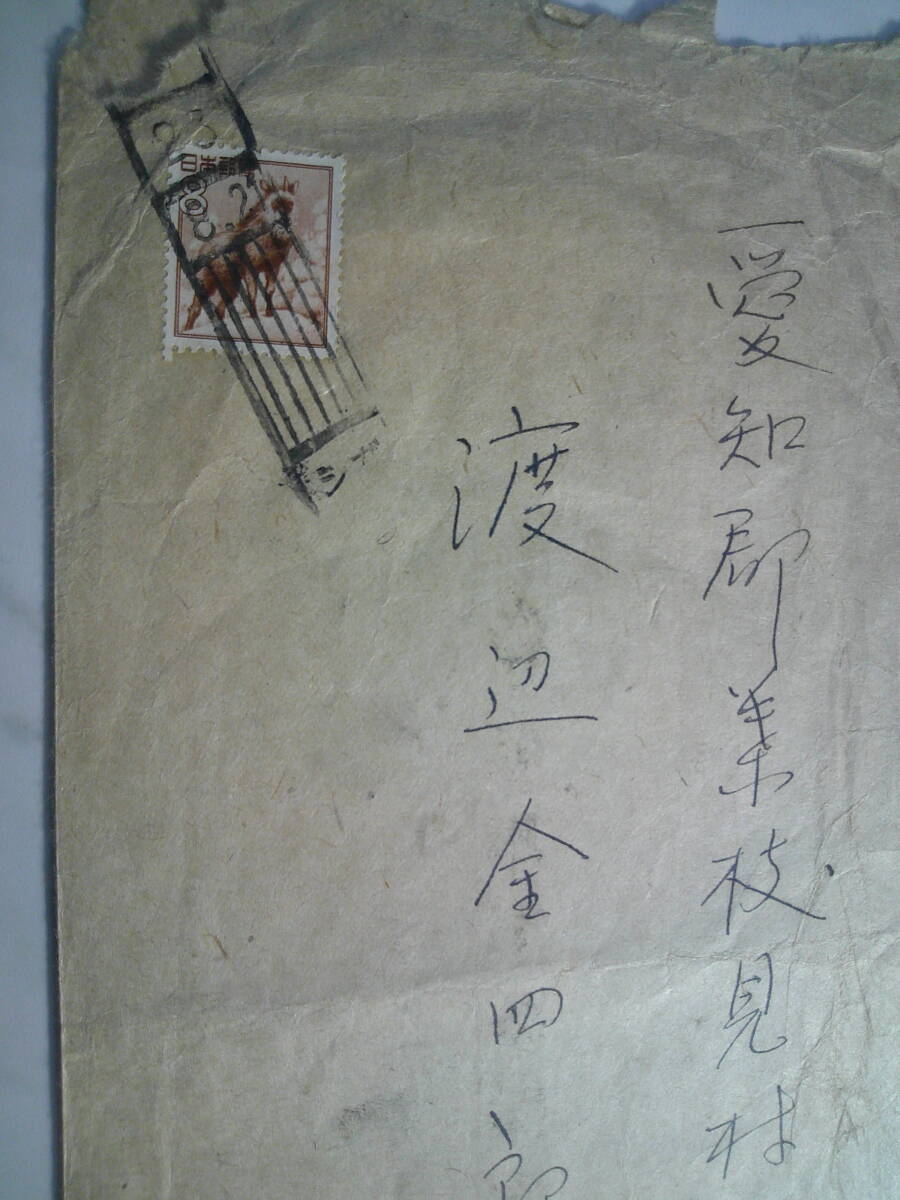 愛知郡業枝見村
渡辺金四郎
日本郵便